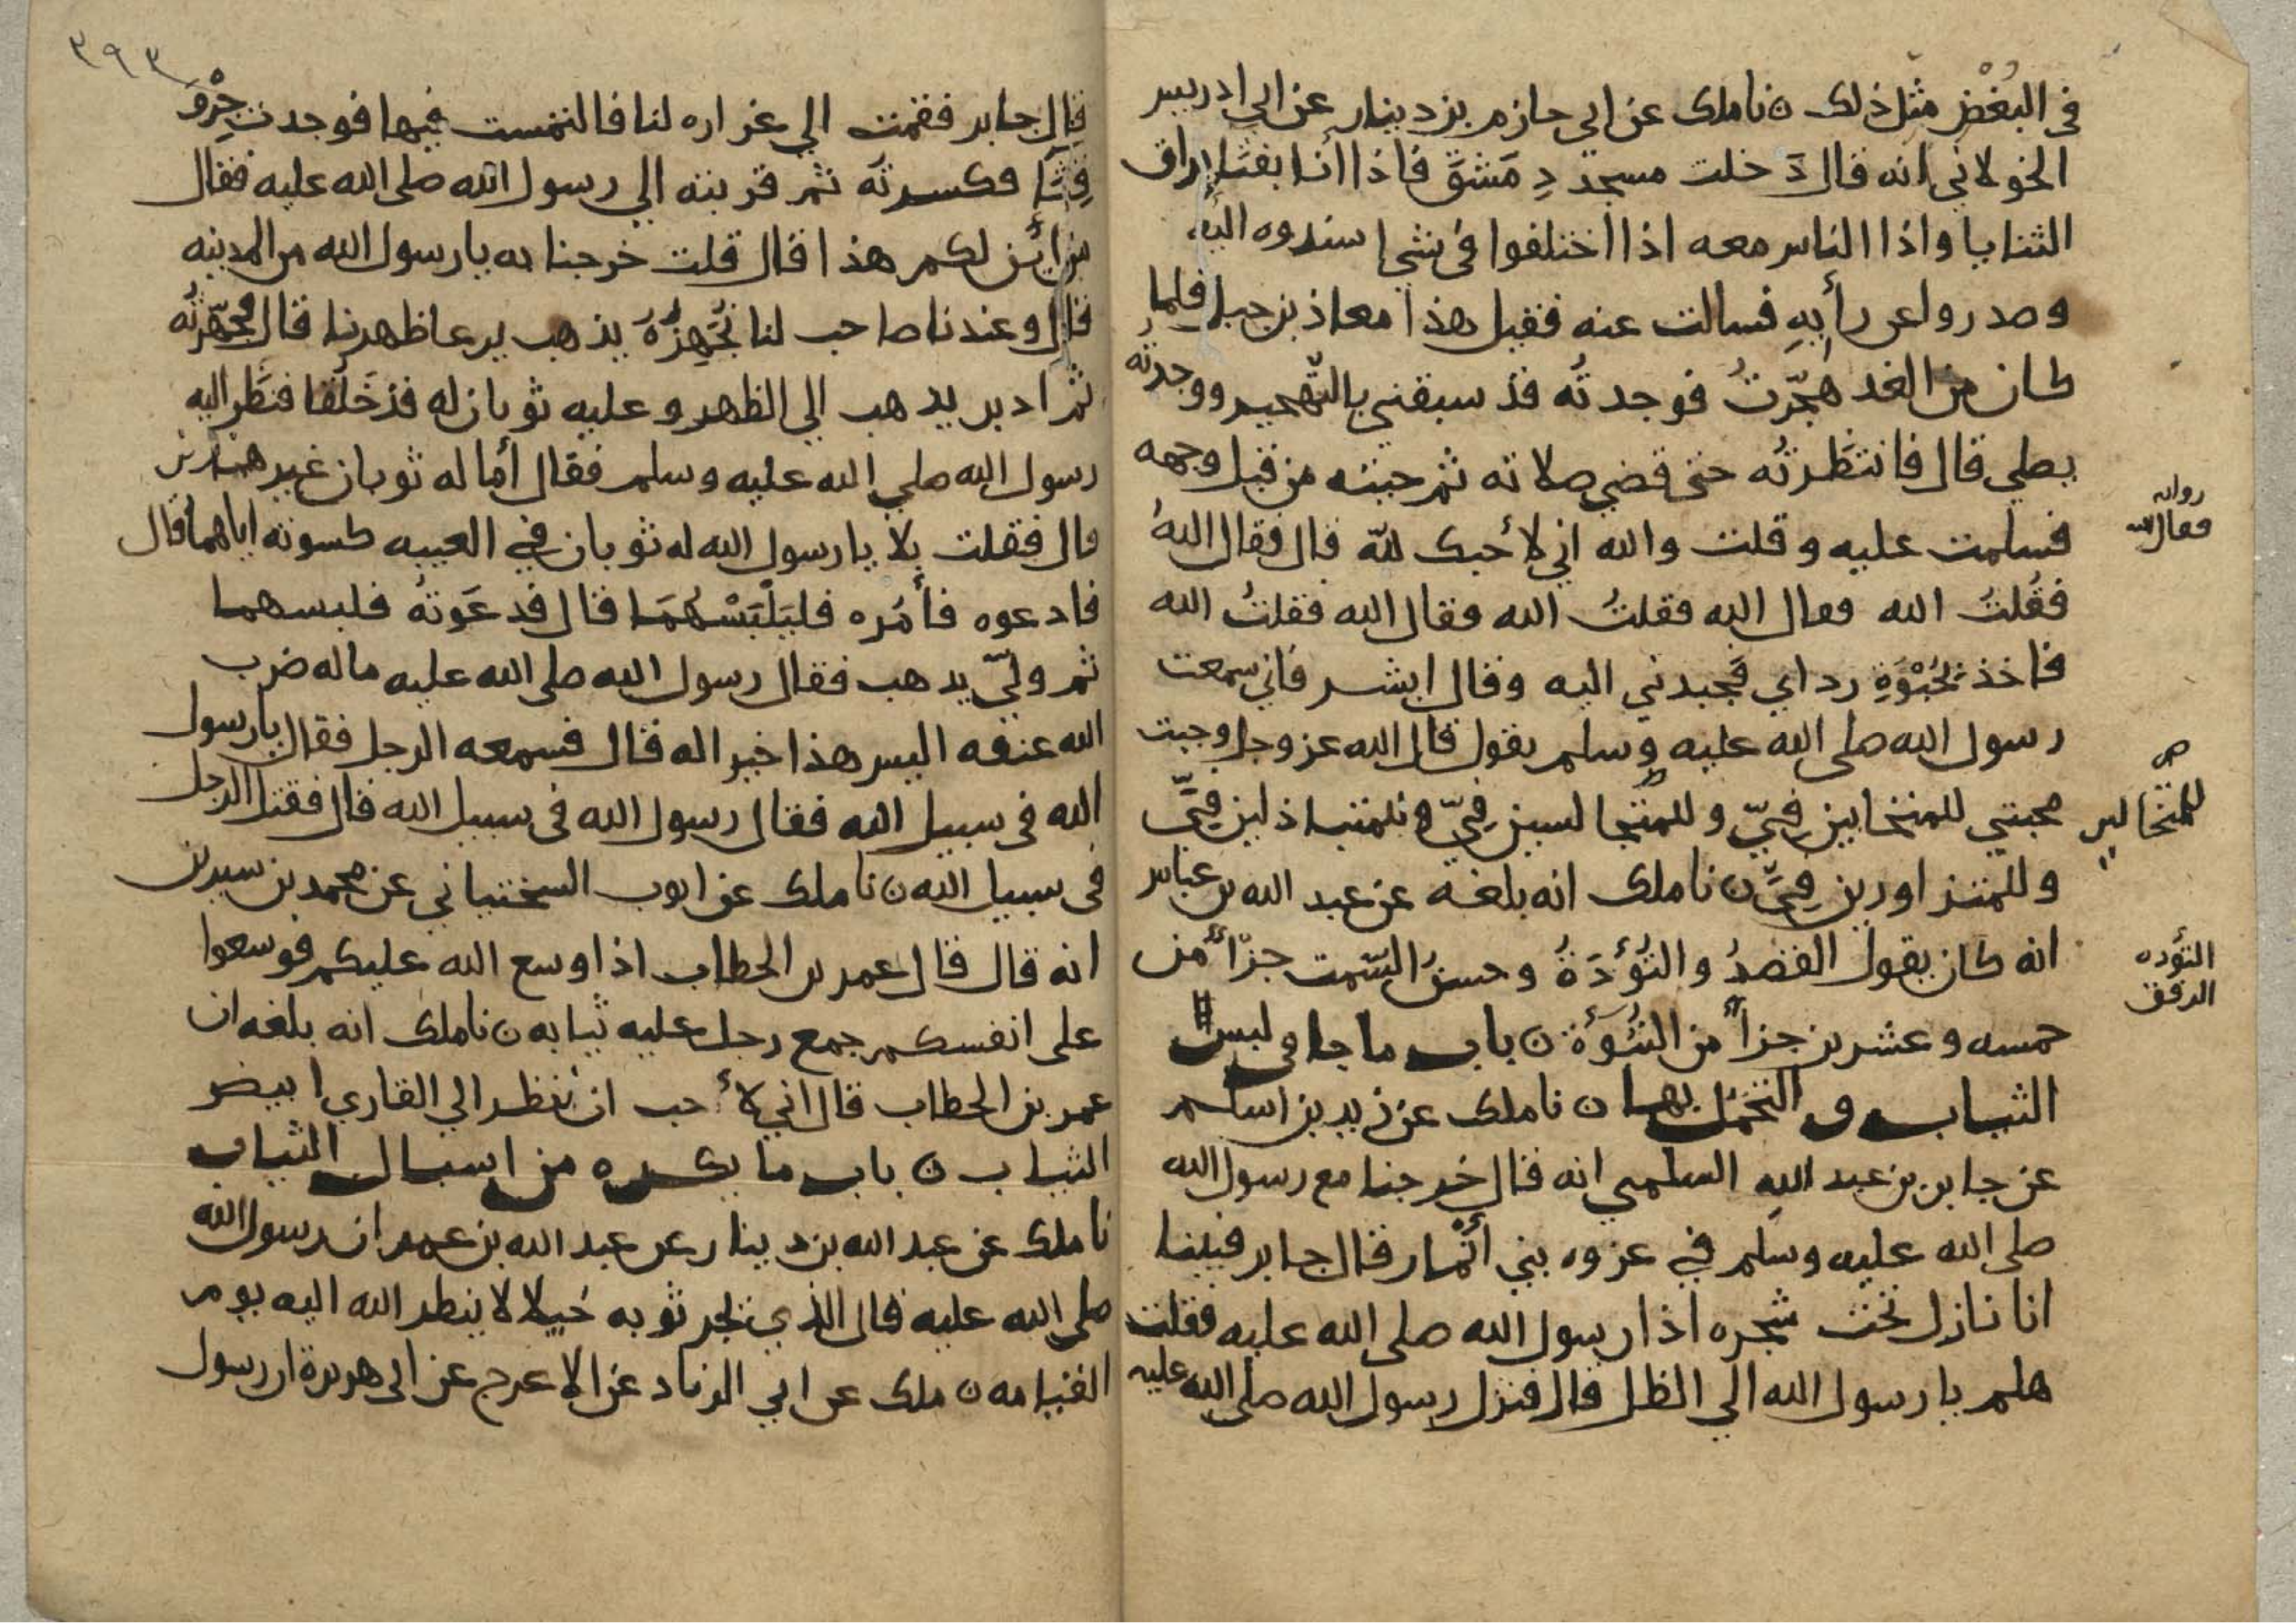 في البُغْضِ مثل ذلك ن نا ملك عن ابي حازم بن دينار عن ابي ادريس
الخولاني انه قال دَخلت مسجد دِمَشقَ فاذا أنا بفتا براق
الثنايا واذا الناس معه اذا اختلفوا في شي اسندوه اليه
وصدروا عن رأيهِ فسالت عنه فقيل هذا معاذ بن جبل فلما
كان من الغد هجّرتُ فوجدته قد سبقني بالتّهجير ووجدته
يصلي قال فانتظرتُه حتى قضي صلاته ثم جيته من قبل وجهه
فسلمت عليه وقلت والله اني لأحبك لله قال فقال اللهُ
فقُلتُ الله فقال الله فقلتُ الله فقال الله فقلتُ الله
فاخذ بحُبْوَةِ رداي فجبدني اليه وقال ابشر فاني سمعت
رسول الله صلى الله عليه وسلم يقول قال الله عز وجل وجبت
محبتي للمتحابين فيّ وللمتجالسين فيّ وللمتباذلين فيَّ
وللمتزاورين فيَّ ن نا ملك انه بلغه عن عبد الله بن عباس
انه كان يقول القصدُ والتُؤَدَةُ وحسنُ السّمت جزأ من
خمسه وعشرين جزأ من النُبُوَّة ن باب ما جا في لبس
الثياب والتجمل بها ن نا ملك عن زيد بن اسلم
عن جابر بن عبد الله السلمي انه قال خرجنا مع رسول الله
صلى الله عليه وسلم في غزوه بني أنْمار قال جابر فبينا
انا نازل تحت شجره اذا رسول الله صلى الله عليه فقلت
هلم يا رسول الله الي الظل قال فنزل رسول الله صلى الله عليه
روايه
فقال الله
للمتجالسين
التؤده
الرفق
٣٩٣
قال جابر فقمت الي غراره لنا فالتمست فيها فوجدت جِرْوَ
قِثّا فكسرته ثم قربته الي رسول الله صلى الله عليه فقال
من أين لكم هذا قال قلت خرجنا به يا رسول الله من المدينه
قال وعندنا صاحب لنا نُجَهِزُهُ يذهب يرعا ظهرنا قال فجهّزتُه
ثم ادبر يدهب الي الظهر وعليه ثوبان له قد خَلَقا فنظر اليه
رسول الله صلي الله عليه وسلم فقال أما له ثوبان غير هذين
قال فقلت بلا يا رسول الله له ثوبان في العيبه كسوته اياهما قال
فادعوه فأمُره فليَلْبَسْهُمَا قال فدعَوتُه فلبسهما
ثم ولّي يدهب فقال رسول الله صلى الله عليه ما له ضرب
الله عنقه اليس هذا خيرا له قال فسمعه الرجل فقال يا رسول
الله في سبيل الله فقال رسول الله في سبيل الله قال فقتل الرجل
في سبيل الله ن نا ملك عن ايوب السختياني عن محمد بن سيرين
انه قال قال عمر بن الخطاب اذا وسع الله عليكم فوسعوا
على انفسكم جمع رجل عليه ثيابه ن نا ملك انه بلغه ان
عمر بن الخطاب قال اني لأحب ان انظر الي القاري ابيض
الثياب ن باب ما يكره من اسبال الثياب
نا ملك عن عبد الله بن دينار عن عبد الله بن عمر ان رسول الله
صلى الله عليه قال الذي يجر ثوبه خُيلا لا ينظر الله اليه يوم
القيامه ن ملك عن ابي الزناد عن الاعرج عن ابي هريرة ان رسول